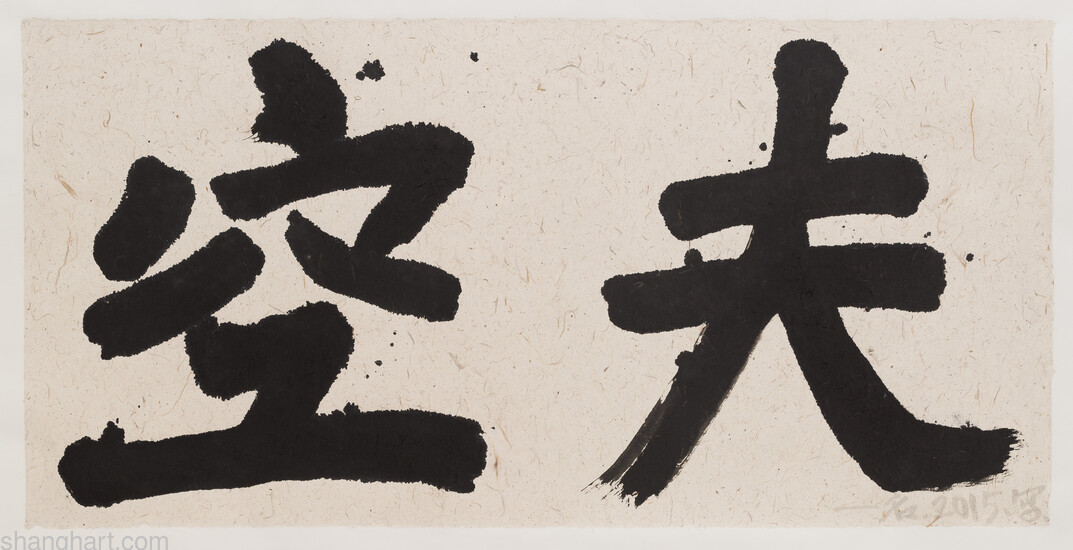 空夫
2015
shanghart.com